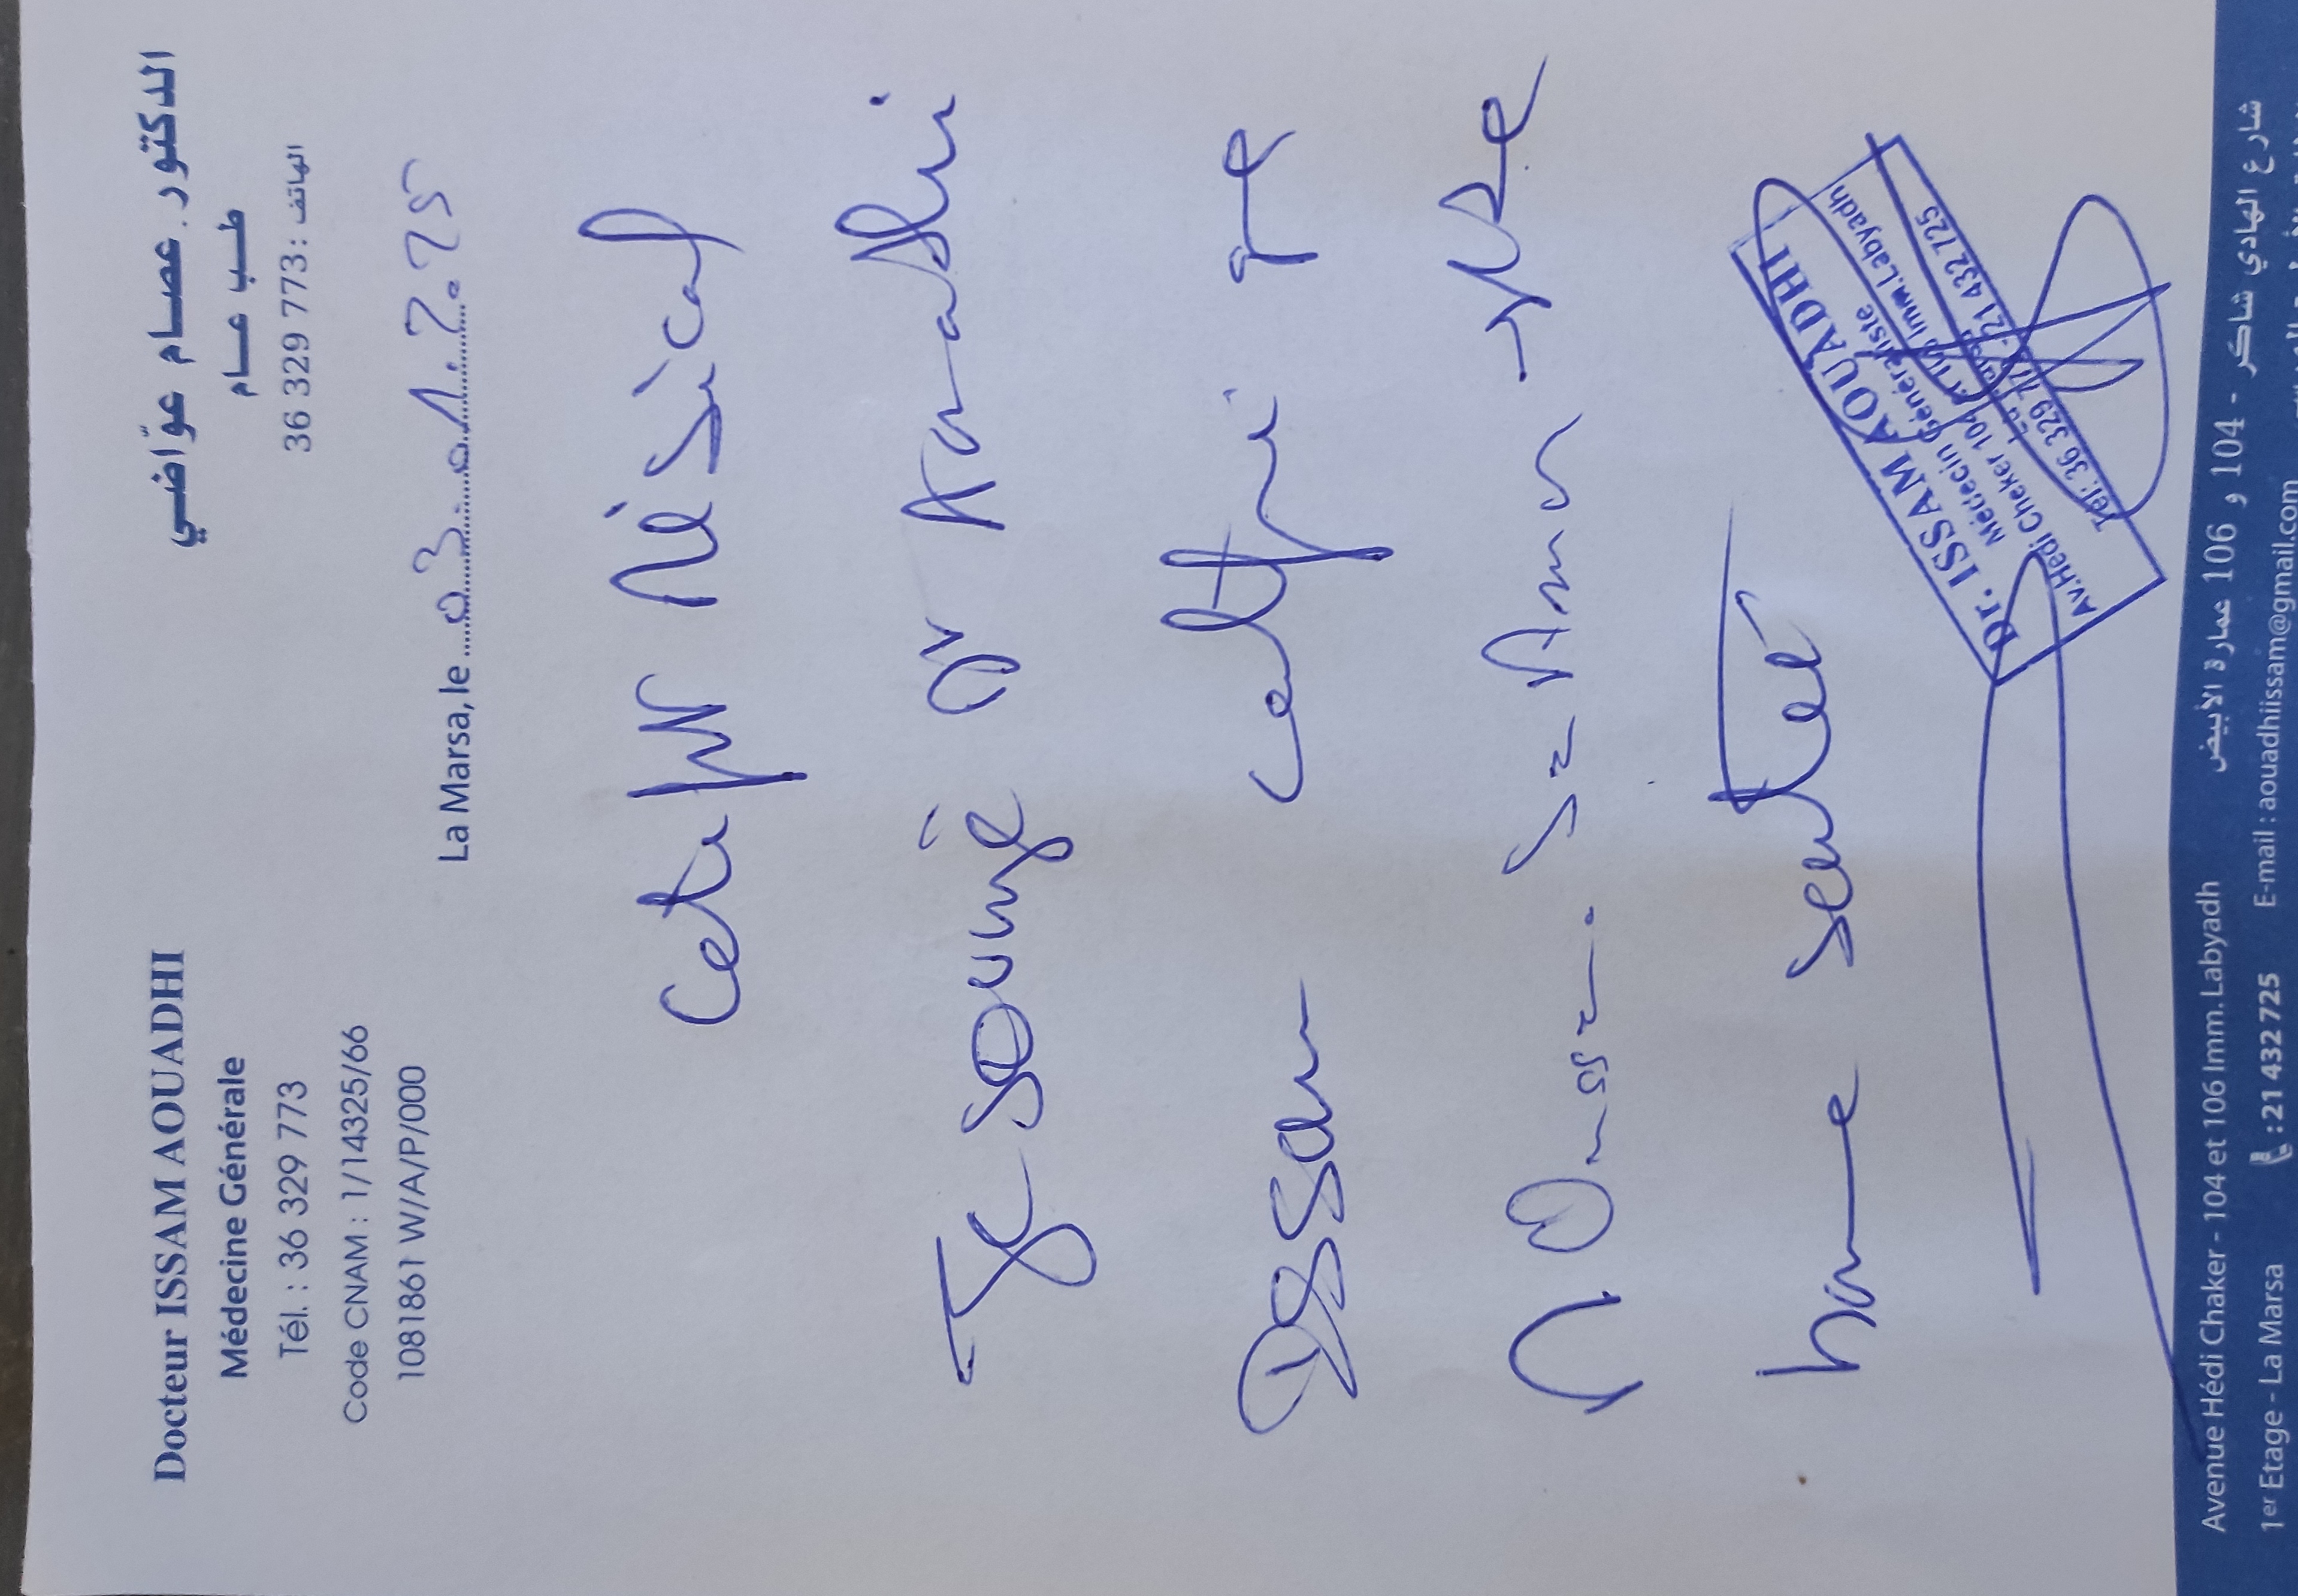 Docteur ISSAM AOUADHI
Médecine Générale
Tél. : 36 329 773
Code CNAM : 1/14325/66
1081861 W/A/P/000
الدكتور عصام عوّاضي
طب عام
الهاتف : 36 329 773
La Marsa, le 03.01.2025
Certificat Médical
Je soussigné Dr Aouadhi
Issam certifie que
M. Oussama Ben Amor
bonne santé
Dr. ISSAM AOUADHI
Médecin Généraliste
Av.Hedi Cheker 104 Imm.Labyadh
Tel: 36 329 773 - 21 432 725
Avenue Hédi Chaker - 104 et 106 Imm. Labyadh
شارع الهادي شاكر - 104 و 106 عمارة الأبيض
1er Etage - La Marsa : 21 432 725 E-mail : aouadhiissam@gmail.com